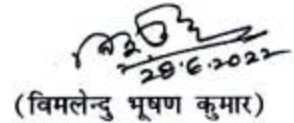 28.6.2022
(विमलेन्दु भूषण कुमार)